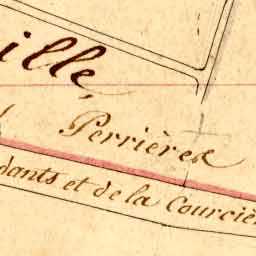 ille
Perrières
dants et de la Courciè